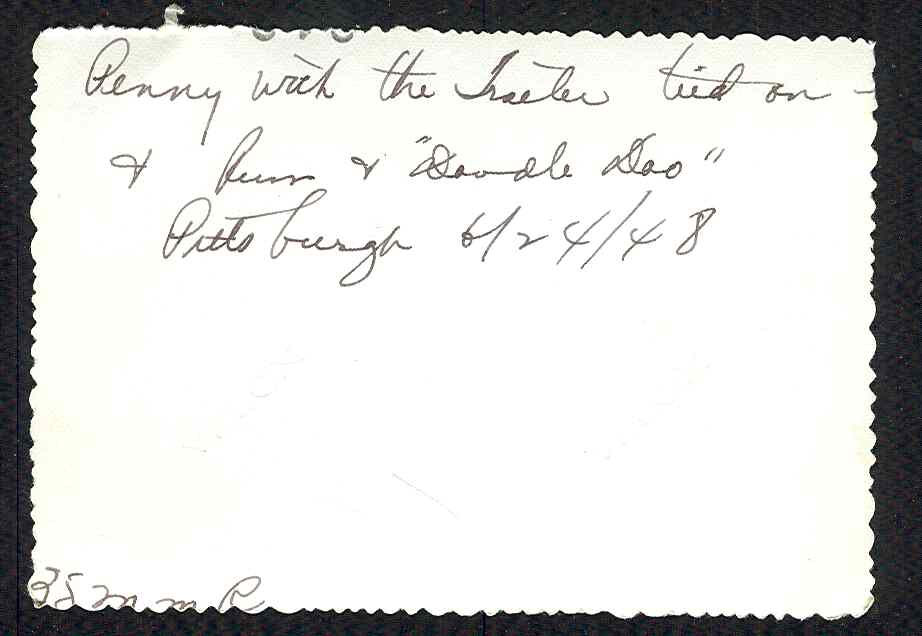 Penny with the Trailer tied on -
& & "Doodle Doo"
Pittsburgh 6/24/48
35 mm R